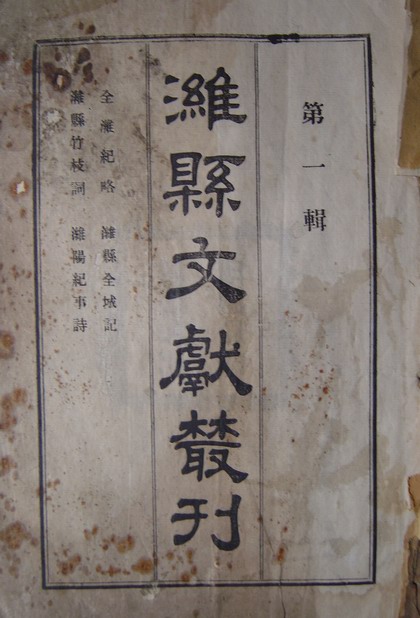 第一輯
濰縣文獻叢刊
全濰紀略 濰縣全城記
濰縣竹枝詞 濰陽紀事詩